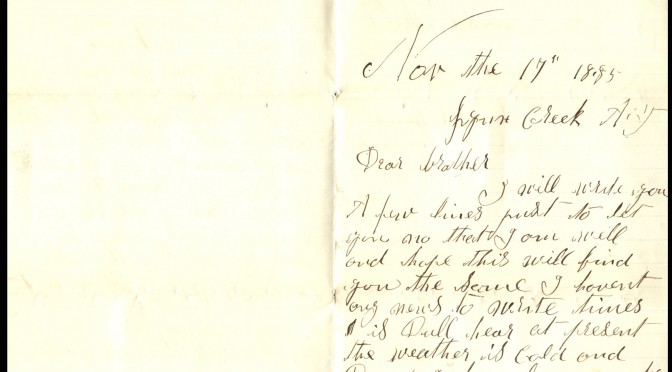 Nov the 17" 1895
Creek
Dear brother
I will write you
A few lines just to let
you no that I am well
and hope this will find
you the Same I havent
any news to write times
is Dull hear at present
the weather is Cold and